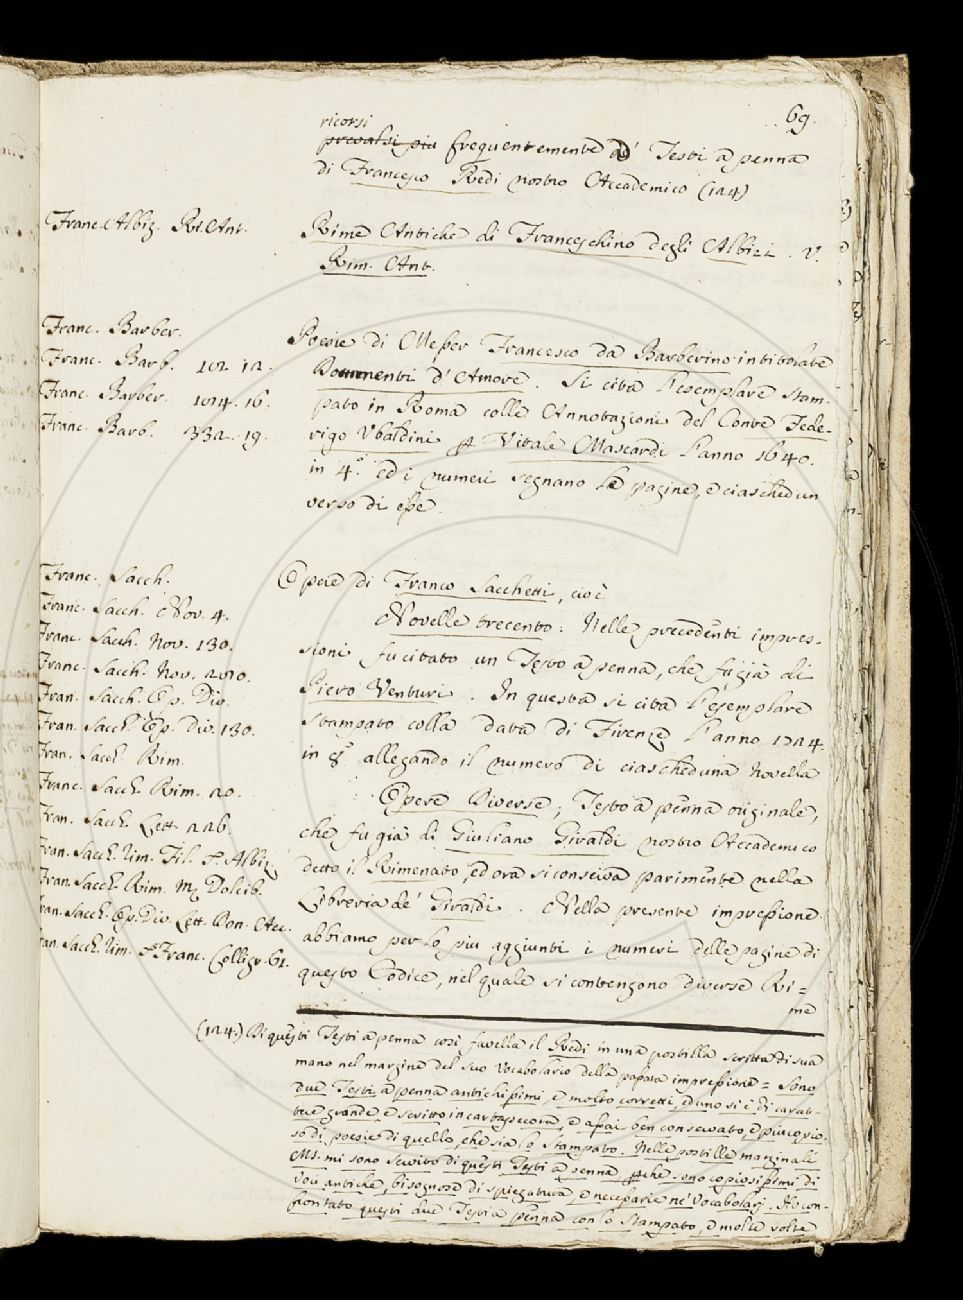 69.
ricorsi
prevalsi più frequentemente a' Testi a penna
di Francesco Redi nostro Accademico (124)
Franc. Albiz. Ri. Ant.
Rime Antiche di Franceschino degli Albizi. V.
Rim. Ant.
Franc. Barber.
Franc. Barb. 102. 12.
Franc. Barber. 104. 16.
Franc. Barb. 332. 19.
Poesie di Messer Francesco da Barberino intitolate
Documenti d'Amore. Si cita l'esemplare stam-
pato in Roma colle Annotazioni del Conte Fede-
rigo Ubaldini per Vitale Mascardi l'anno 1640.
in 4.° ed i numeri segnano le pagine, e ciaschedun
verso di esse.
Franc. Sacch.
Franc. Sacch. Nov. 4.
Franc. Sacch. Nov. 130.
Franc. Sacch. Nov. 210.
Fran. Sacch. Op. Div.
Fran. Sacch. Op. Div. 130.
Fran. Sacch. Rim.
Franc. Sacch. Rim. 20.
Fran. Sacch. Lett. 226.
Fran. Sacch. Rim. Fil. Albiz.
Fran. Sacch. Rim. Dolcib.
Fran. Sacch. Op. Div. Lett. Don. Acc.
Fran. Sacch. Rim. Franc. Colligr. 61.
Opere di Franco Sacchetti, cioè
Novelle trecento: Nelle precedenti impres-
sioni fu citato un Testo a penna, che fu già di
Piero Venturi. In questa si cita l'esemplare
stampato colla data di Firenze l'anno 1724.
in 8.° allegando il numero di ciascheduna Novella
Opere Diverse; Testo a penna originale,
che fu già di Giuliano Giraldi nostro Accademico
detto il Rimenato, ed ora si conserva parimente nella
Libreria de' Giraldi. Nella presente impressione
abbiamo per lo più aggiunti i numeri delle pagine di
questo Codice, nel quale si contengono diverse Ri=
me
(124.) Di questi Testi a penna così favella il Redi in una postilla scritta di sua
mano nel margine del suo Vocabolario della passata impressione = Sono
due Testi a penna antichissimi, e molto corretti, ed uno si è di carat-
tere grande, e scritto in cartapecora, e assai ben conservato, e più copio-
so di poesie di quello, che sia lo Stampato. Nelle postille marginali
MS. mi sono servito di questi Testi a penna perche sono copiosissimi di
Voci antiche, bisognose di spiegatura, e necessarie ne' Vocabolarj. Ho con-
frontato questi due Testi a penna con lo Stampato, e molte volte